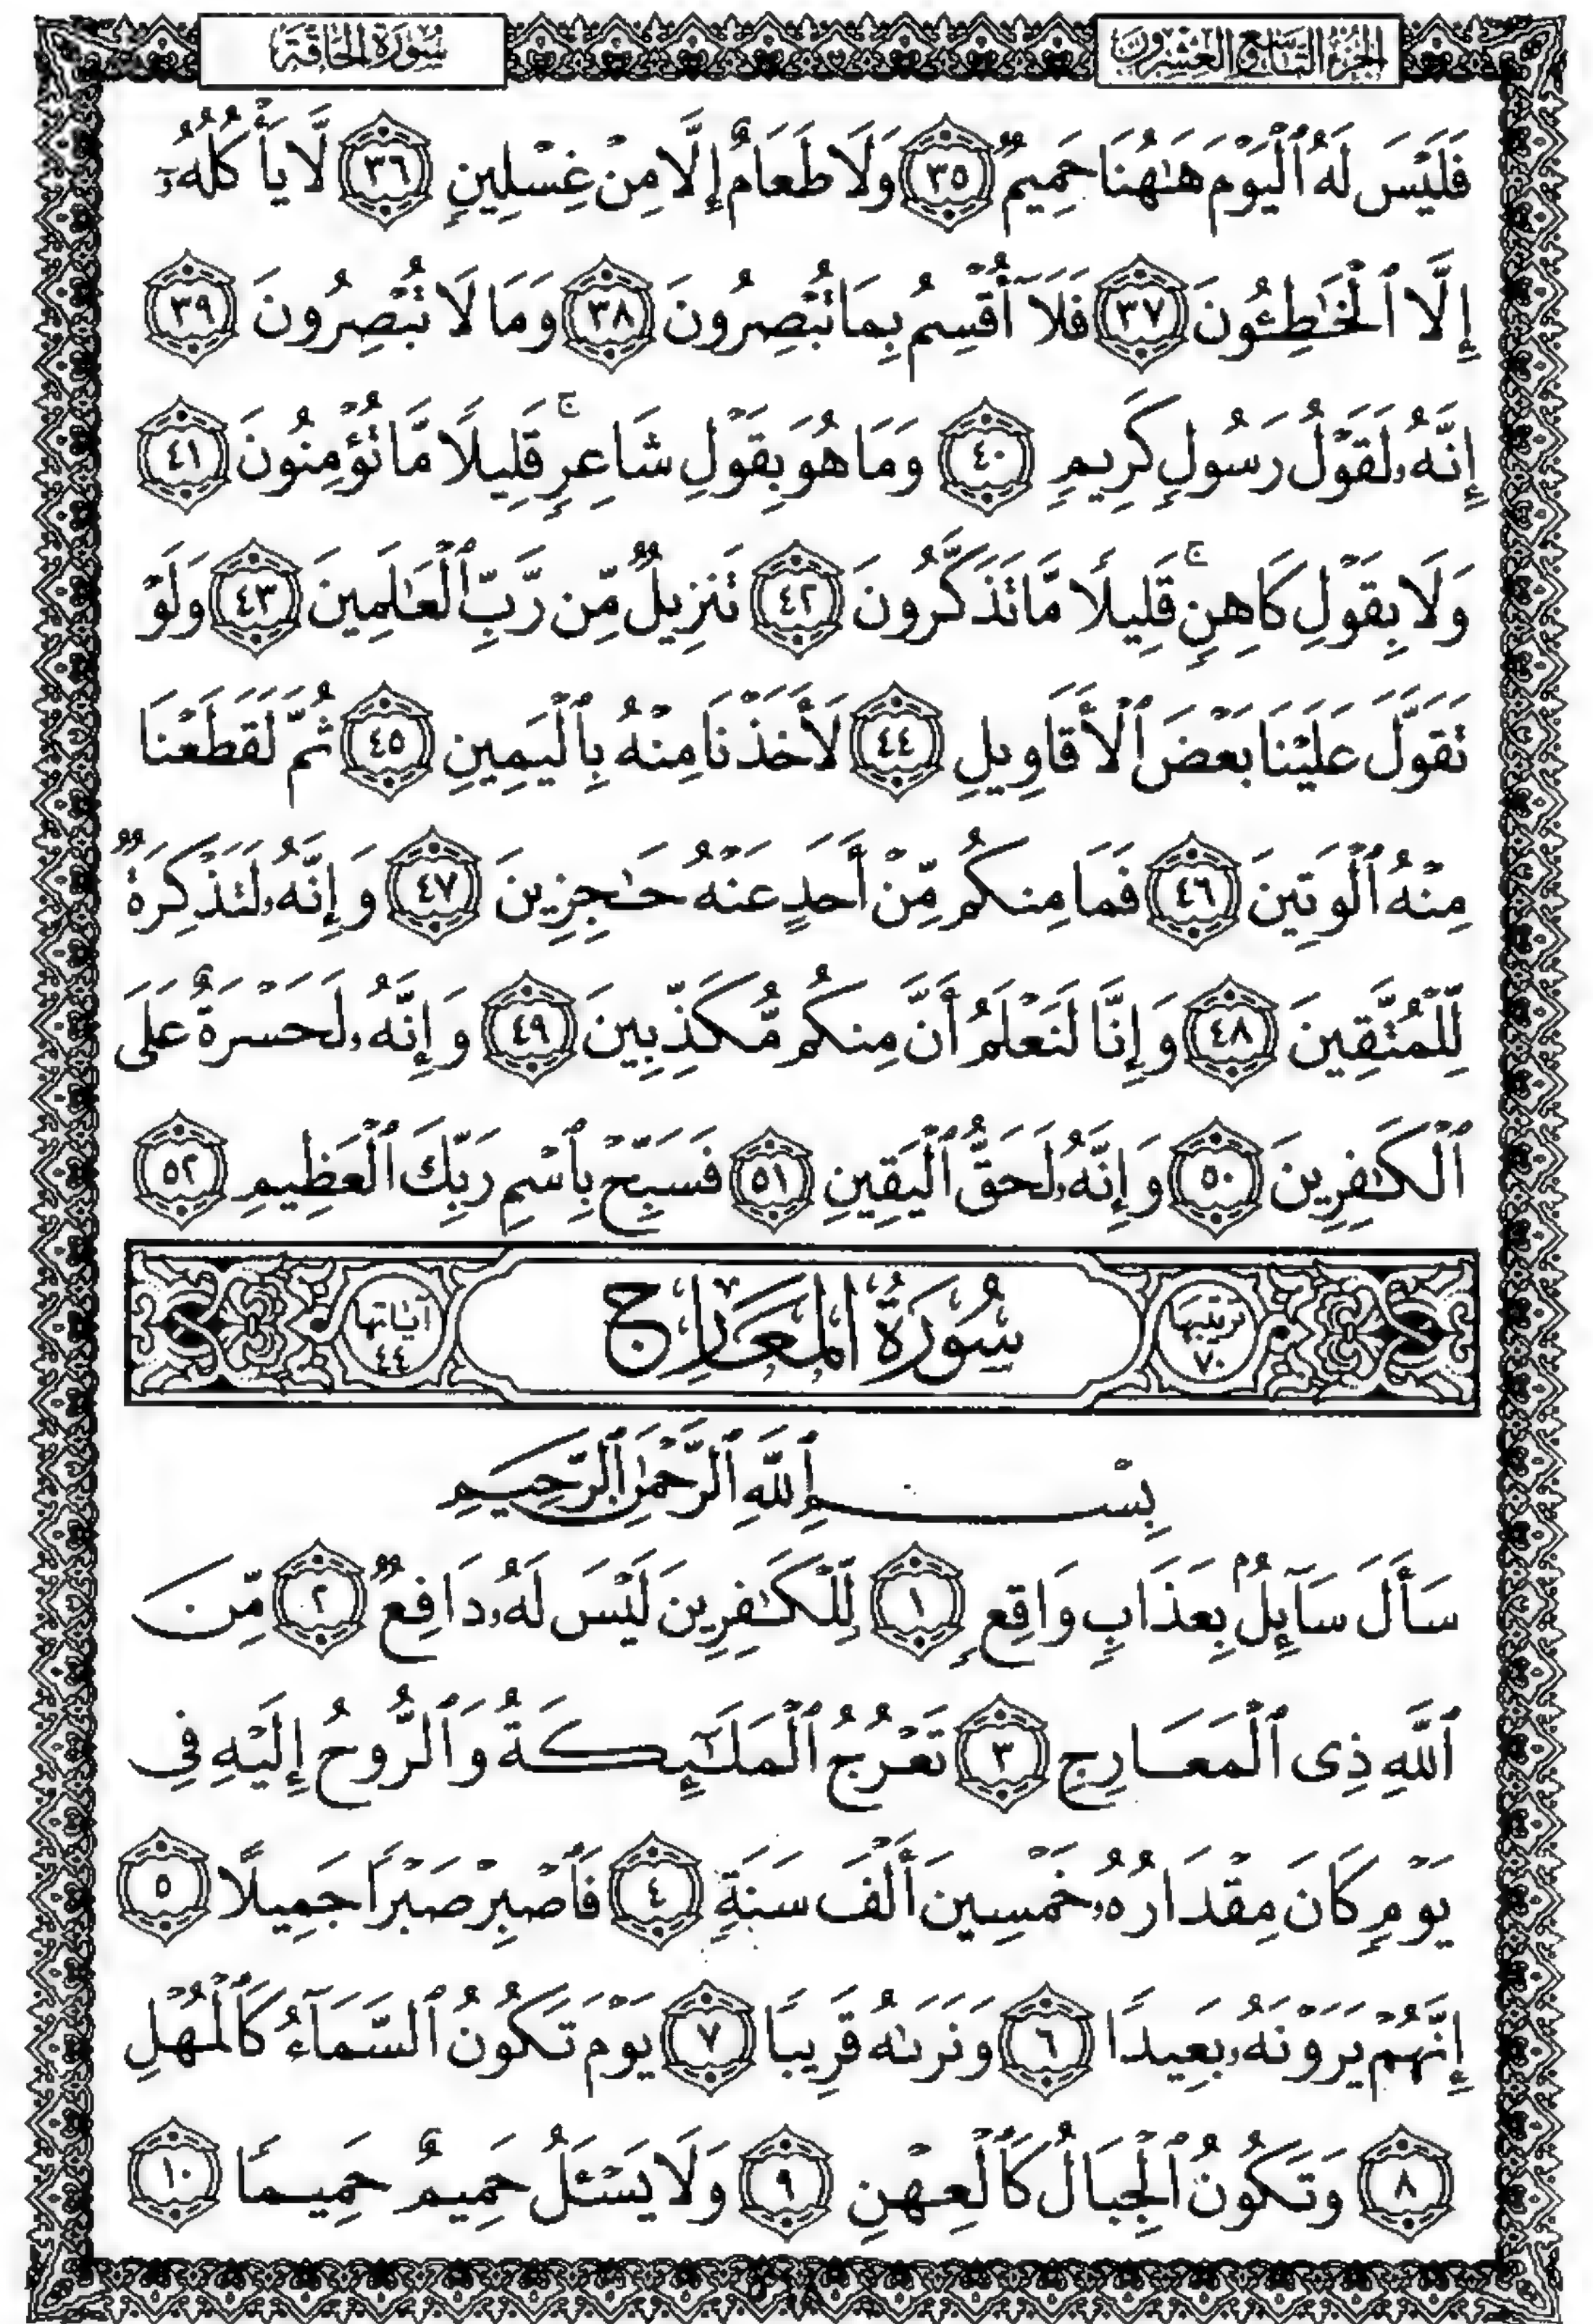 الجزء التاسع والعشرون
سورة الحاقة
فَلَيْسَ لَهُ ٱلْيَوْمَ هَٰهُنَا حَمِيمٌ ٣٥ وَلَا طَعَامٌ إِلَّا مِنْ غِسْلِينٍ ٣٦ لَّا يَأْكُلُهُۥٓ
إِلَّا ٱلْخَٰطِـُٔونَ ٣٧ فَلَآ أُقْسِمُ بِمَا تُبْصِرُونَ ٣٨ وَمَا لَا تُبْصِرُونَ ٣٩
إِنَّهُۥ لَقَوْلُ رَسُولٍ كَرِيمٍ ٤٠ وَمَا هُوَ بِقَوْلِ شَاعِرٍ ۚ قَلِيلًا مَّا تُؤْمِنُونَ ٤١
وَلَا بِقَوْلِ كَاهِنٍ ۚ قَلِيلًا مَّا تَذَكَّرُونَ ٤٢ تَنزِيلٌ مِّن رَّبِّ ٱلْعَٰلَمِينَ ٤٣ وَلَوْ
تَقَوَّلَ عَلَيْنَا بَعْضَ ٱلْأَقَاوِيلِ ٤٤ لَأَخَذْنَا مِنْهُ بِٱلْيَمِينِ ٤٥ ثُمَّ لَقَطَعْنَا
مِنْهُ ٱلْوَتِينَ ٤٦ فَمَا مِنكُم مِّنْ أَحَدٍ عَنْهُ حَٰجِزِينَ ٤٧ وَإِنَّهُۥ لَتَذْكِرَةٌ
لِّلْمُتَّقِينَ ٤٨ وَإِنَّا لَنَعْلَمُ أَنَّ مِنكُم مُّكَذِّبِينَ ٤٩ وَإِنَّهُۥ لَحَسْرَةٌ عَلَى
ٱلْكَٰفِرِينَ ٥٠ وَإِنَّهُۥ لَحَقُّ ٱلْيَقِينِ ٥١ فَسَبِّحْ بِٱسْمِ رَبِّكَ ٱلْعَظِيمِ ٥٢
ترتيبها ٧٠ سُورَةُ المَعَارِجِ آياتها ٤٤
بِسْمِ ٱللَّهِ ٱلرَّحْمَٰنِ ٱلرَّحِيمِ
سَأَلَ سَآئِلٌۢ بِعَذَابٍ وَاقِعٍ ١ لِّلْكَٰفِرِينَ لَيْسَ لَهُۥ دَافِعٌ ٢ مِّنَ
ٱللَّهِ ذِى ٱلْمَعَارِجِ ٣ تَعْرُجُ ٱلْمَلَٰٓئِكَةُ وَٱلرُّوحُ إِلَيْهِ فِى
يَوْمٍ كَانَ مِقْدَارُهُۥ خَمْسِينَ أَلْفَ سَنَةٍ ٤ فَٱصْبِرْ صَبْرًا جَمِيلًا ٥
إِنَّهُمْ يَرَوْنَهُۥ بَعِيدًا ٦ وَنَرَىٰهُ قَرِيبًا ٧ يَوْمَ تَكُونُ ٱلسَّمَآءُ كَٱلْمُهْلِ
٨ وَتَكُونُ ٱلْجِبَالُ كَٱلْعِهْنِ ٩ وَلَا يَسْـَٔلُ حَمِيمٌ حَمِيمًا ١٠